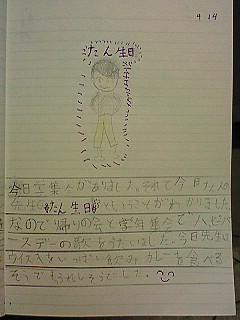 4 14
たん生日
今日学集会がありました。それで今日たんの
先生のたん生日だということがわかりました。
なので帰りの会と学年集会でハッピーバ
ースデーの歌をうたいました。今日先生は
ウイスキーをいっぱい飲み、カレーも食べる
そうでもうれしそうでした。